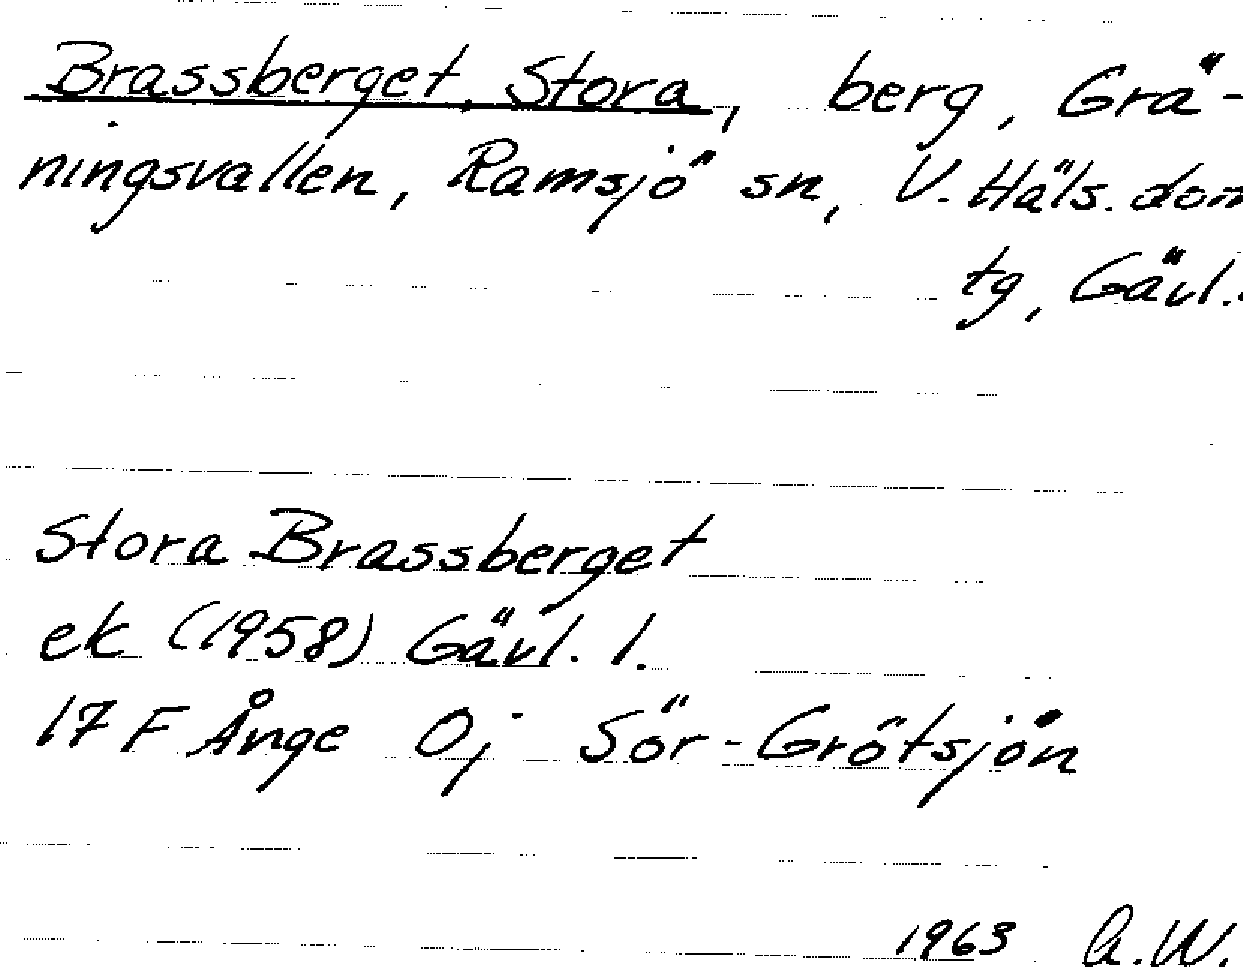 Brassberget, Stora, berg, Grä-
ningsvallen, Ramsjö sn, V. Häls. dom
tg, Gävl.
Stora Brassberget
ek (1958) Gävl. l.
17 F Ånge Oj Sör-Grötsjön
1963 A.W.